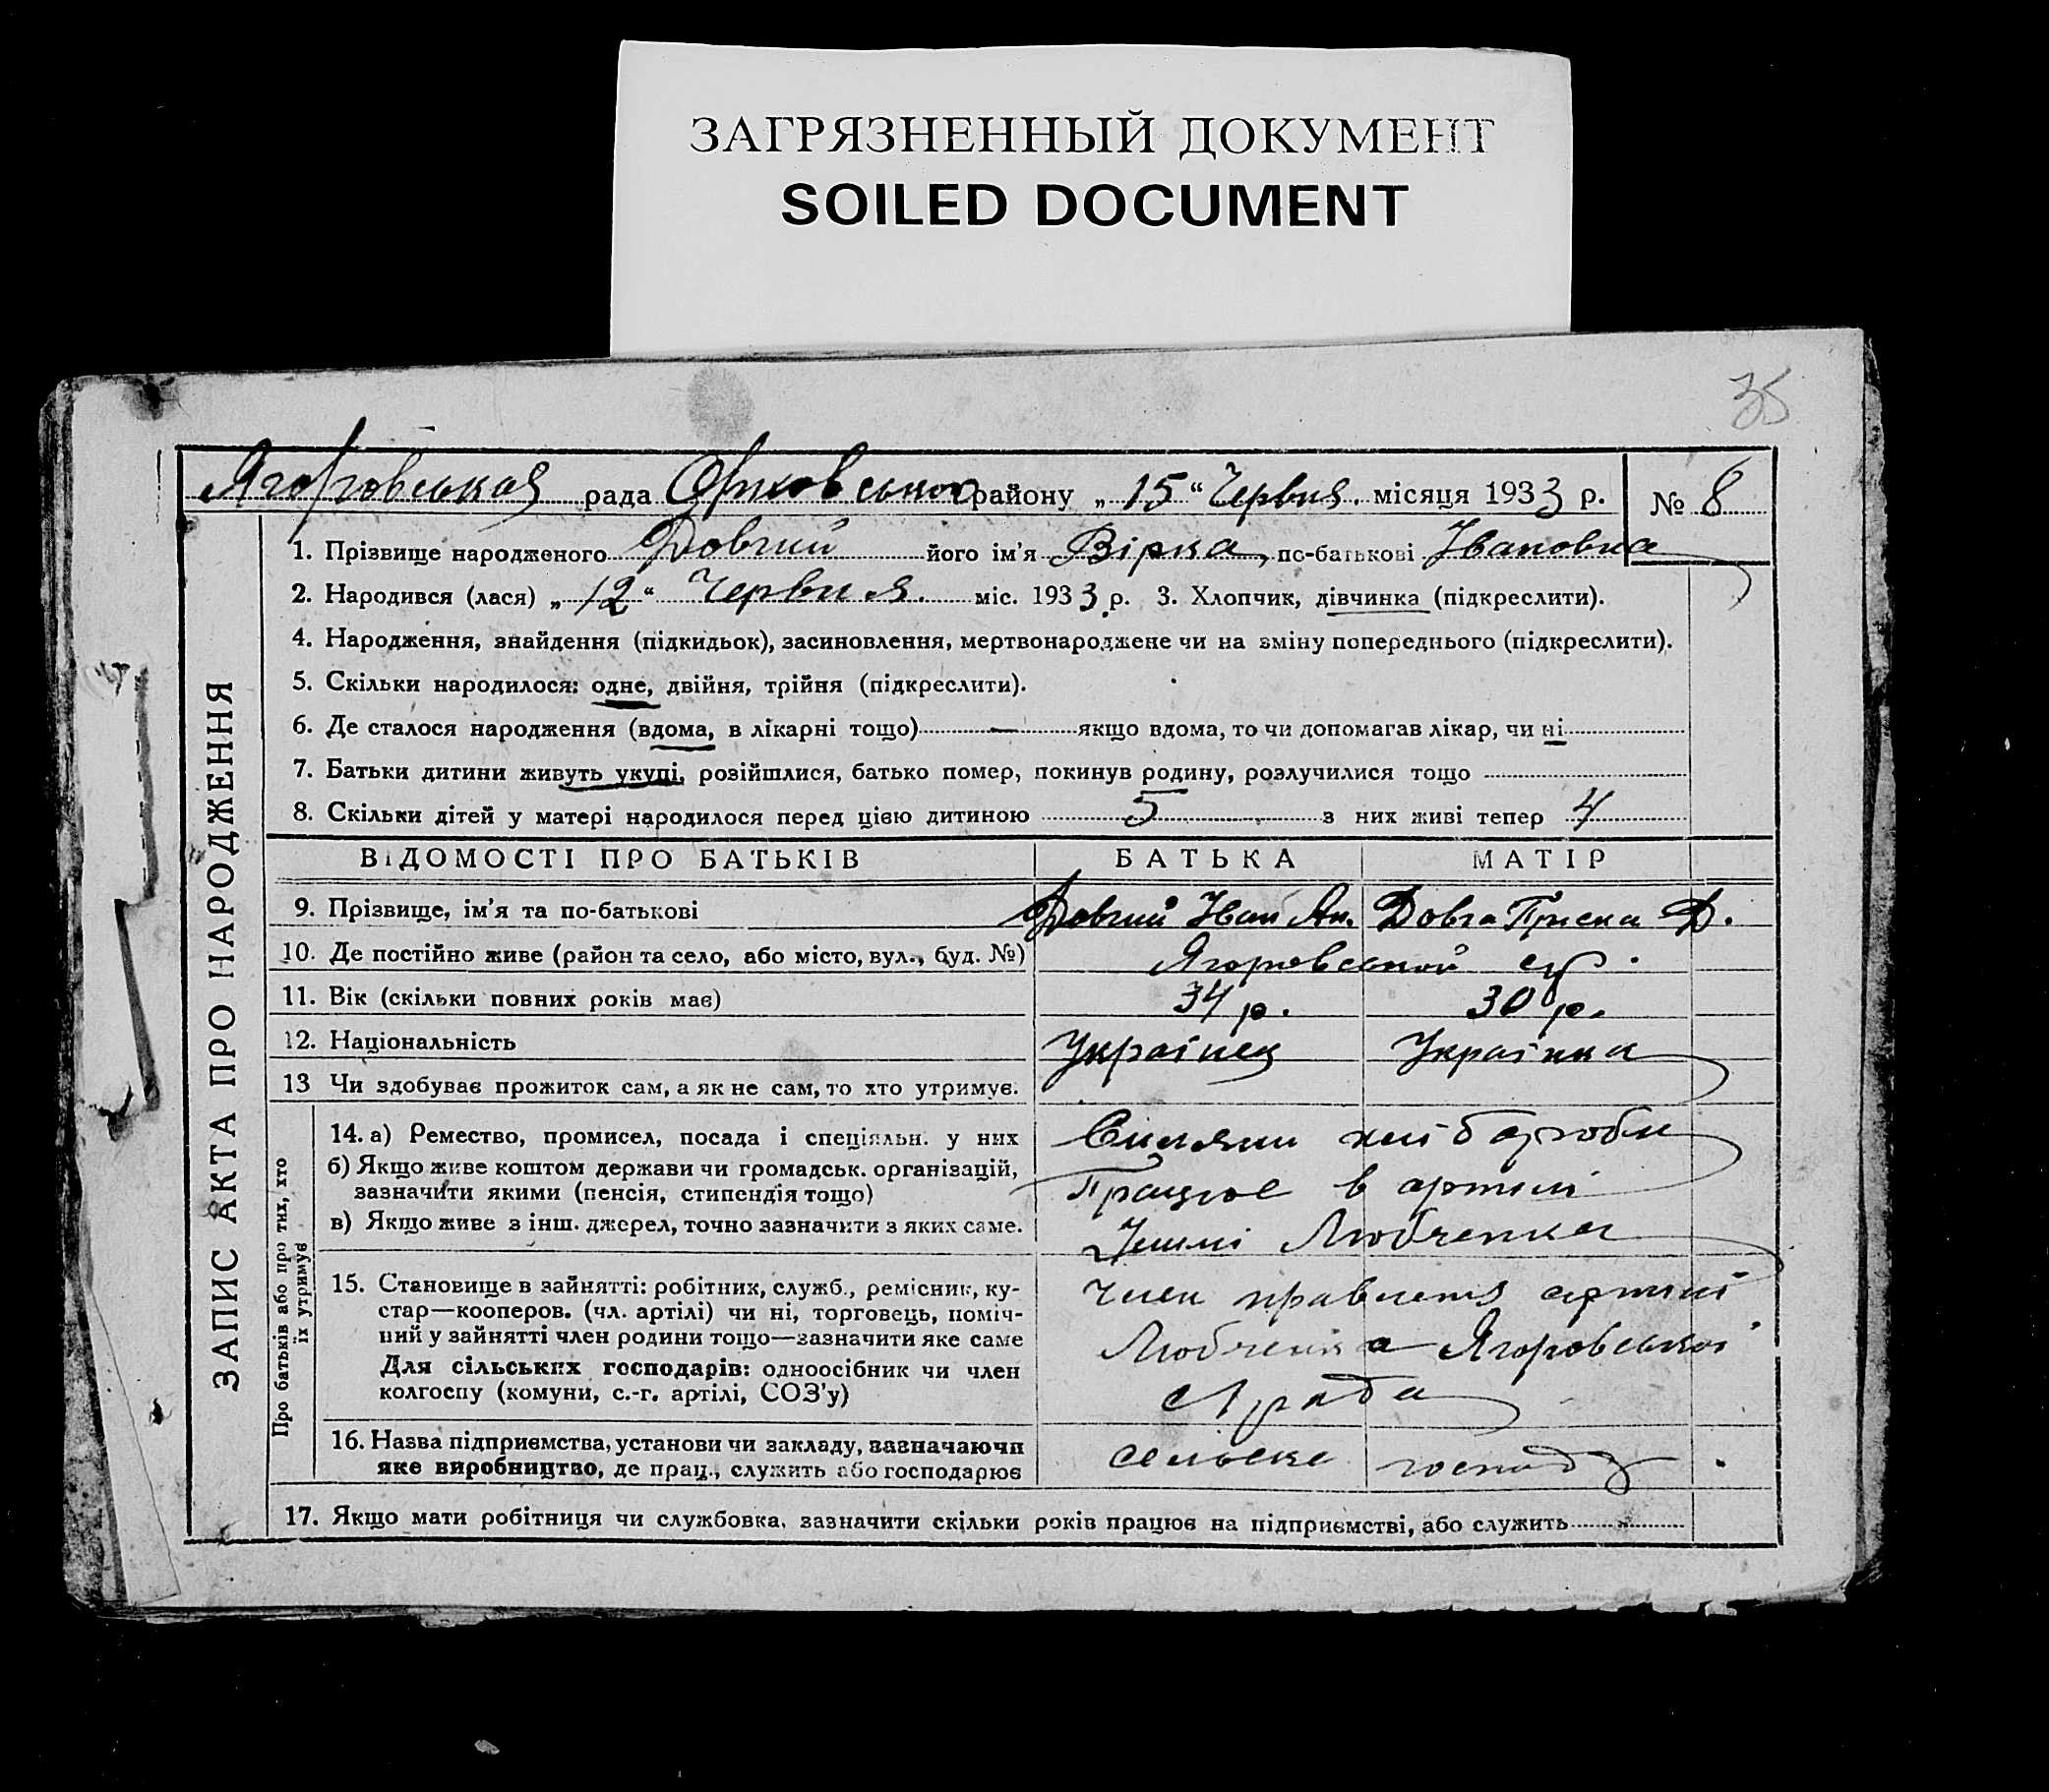 ЗАГРЯЗНЕННЫЙ ДОКУМЕНТ
SOILED DOCUMENT
35
рада району „ 15 “ Червня місяця 1933 р. № 8
1. Прізвище народженого Довгий його ім'я Вірка, по-батькові Івановна
2. Народився (лася) „ 12 “ Червня. міс. 1933 р. 3. Хлопчик, дівчинка (підкреслити).
4. Народження, знайдення (підкидьок), засиновлення, мертвонароджене чи на зміну попереднього (підкреслити).
5. Скільки народилося: одне, двійня, трійня (підкреслити).
6. Де сталося народження (вдома, в лікарні тощо) — якщо вдома, то чи допомагав лікар, чи ні
7. Батьки дитини живуть укупі, розійшлися, батько помер, покинув родину, розлучилися тощо
8. Скільки дітей у матері народилося перед цією дитиною 5 з них живі тепер 4
ЗАПИС АКТА ПРО НАРОДЖЕННЯ
ВІДОМОСТІ ПРО БАТЬКІВ БАТЬКА МАТІР
9. Прізвище, ім'я та по-батькові Довгий Іван Ан. Довга Пріська Д.
10. Де постійно живе (район та село, або місто, вул., буд. №)
11. Вік (скільки повних років має) 34 р. 30 р.
12. Національність Українец Українка
13 Чи здобуває прожиток сам, а як не сам, то хто утримує.
Про батьків або про тих, хто
їх утримує
14. а) Ремество, промисел, посада і спеціяльн. у них
б) Якщо живе коштом держави чи громадськ. організацій,
зазначити якими (пенсія, стипендія тощо)
Працює в артілі
в) Якщо живе з інш. джерел, точно зазначити з яких саме.
Любченка
15. Становище в зайнятті: робітник, служб., ремісник, ку-
стар—кооперов. (чл. артілі) чи ні, торговець, поміч-
ний у зайнятті член родини тощо—зазначити яке саме
Для сільських господарів: одноосібник чи член
колгоспу (комуни, с.-г. артілі, СОЗ'у)
Член правленя артілі
Любченка
16. Назва підприємства, установи чи закладу, зазначаючи
яке виробництво, де прац., служить або господарює
сельске господ
17. Якщо мати робітниця чи службовка, зазначити скільки років працює на підприємстві, або служить